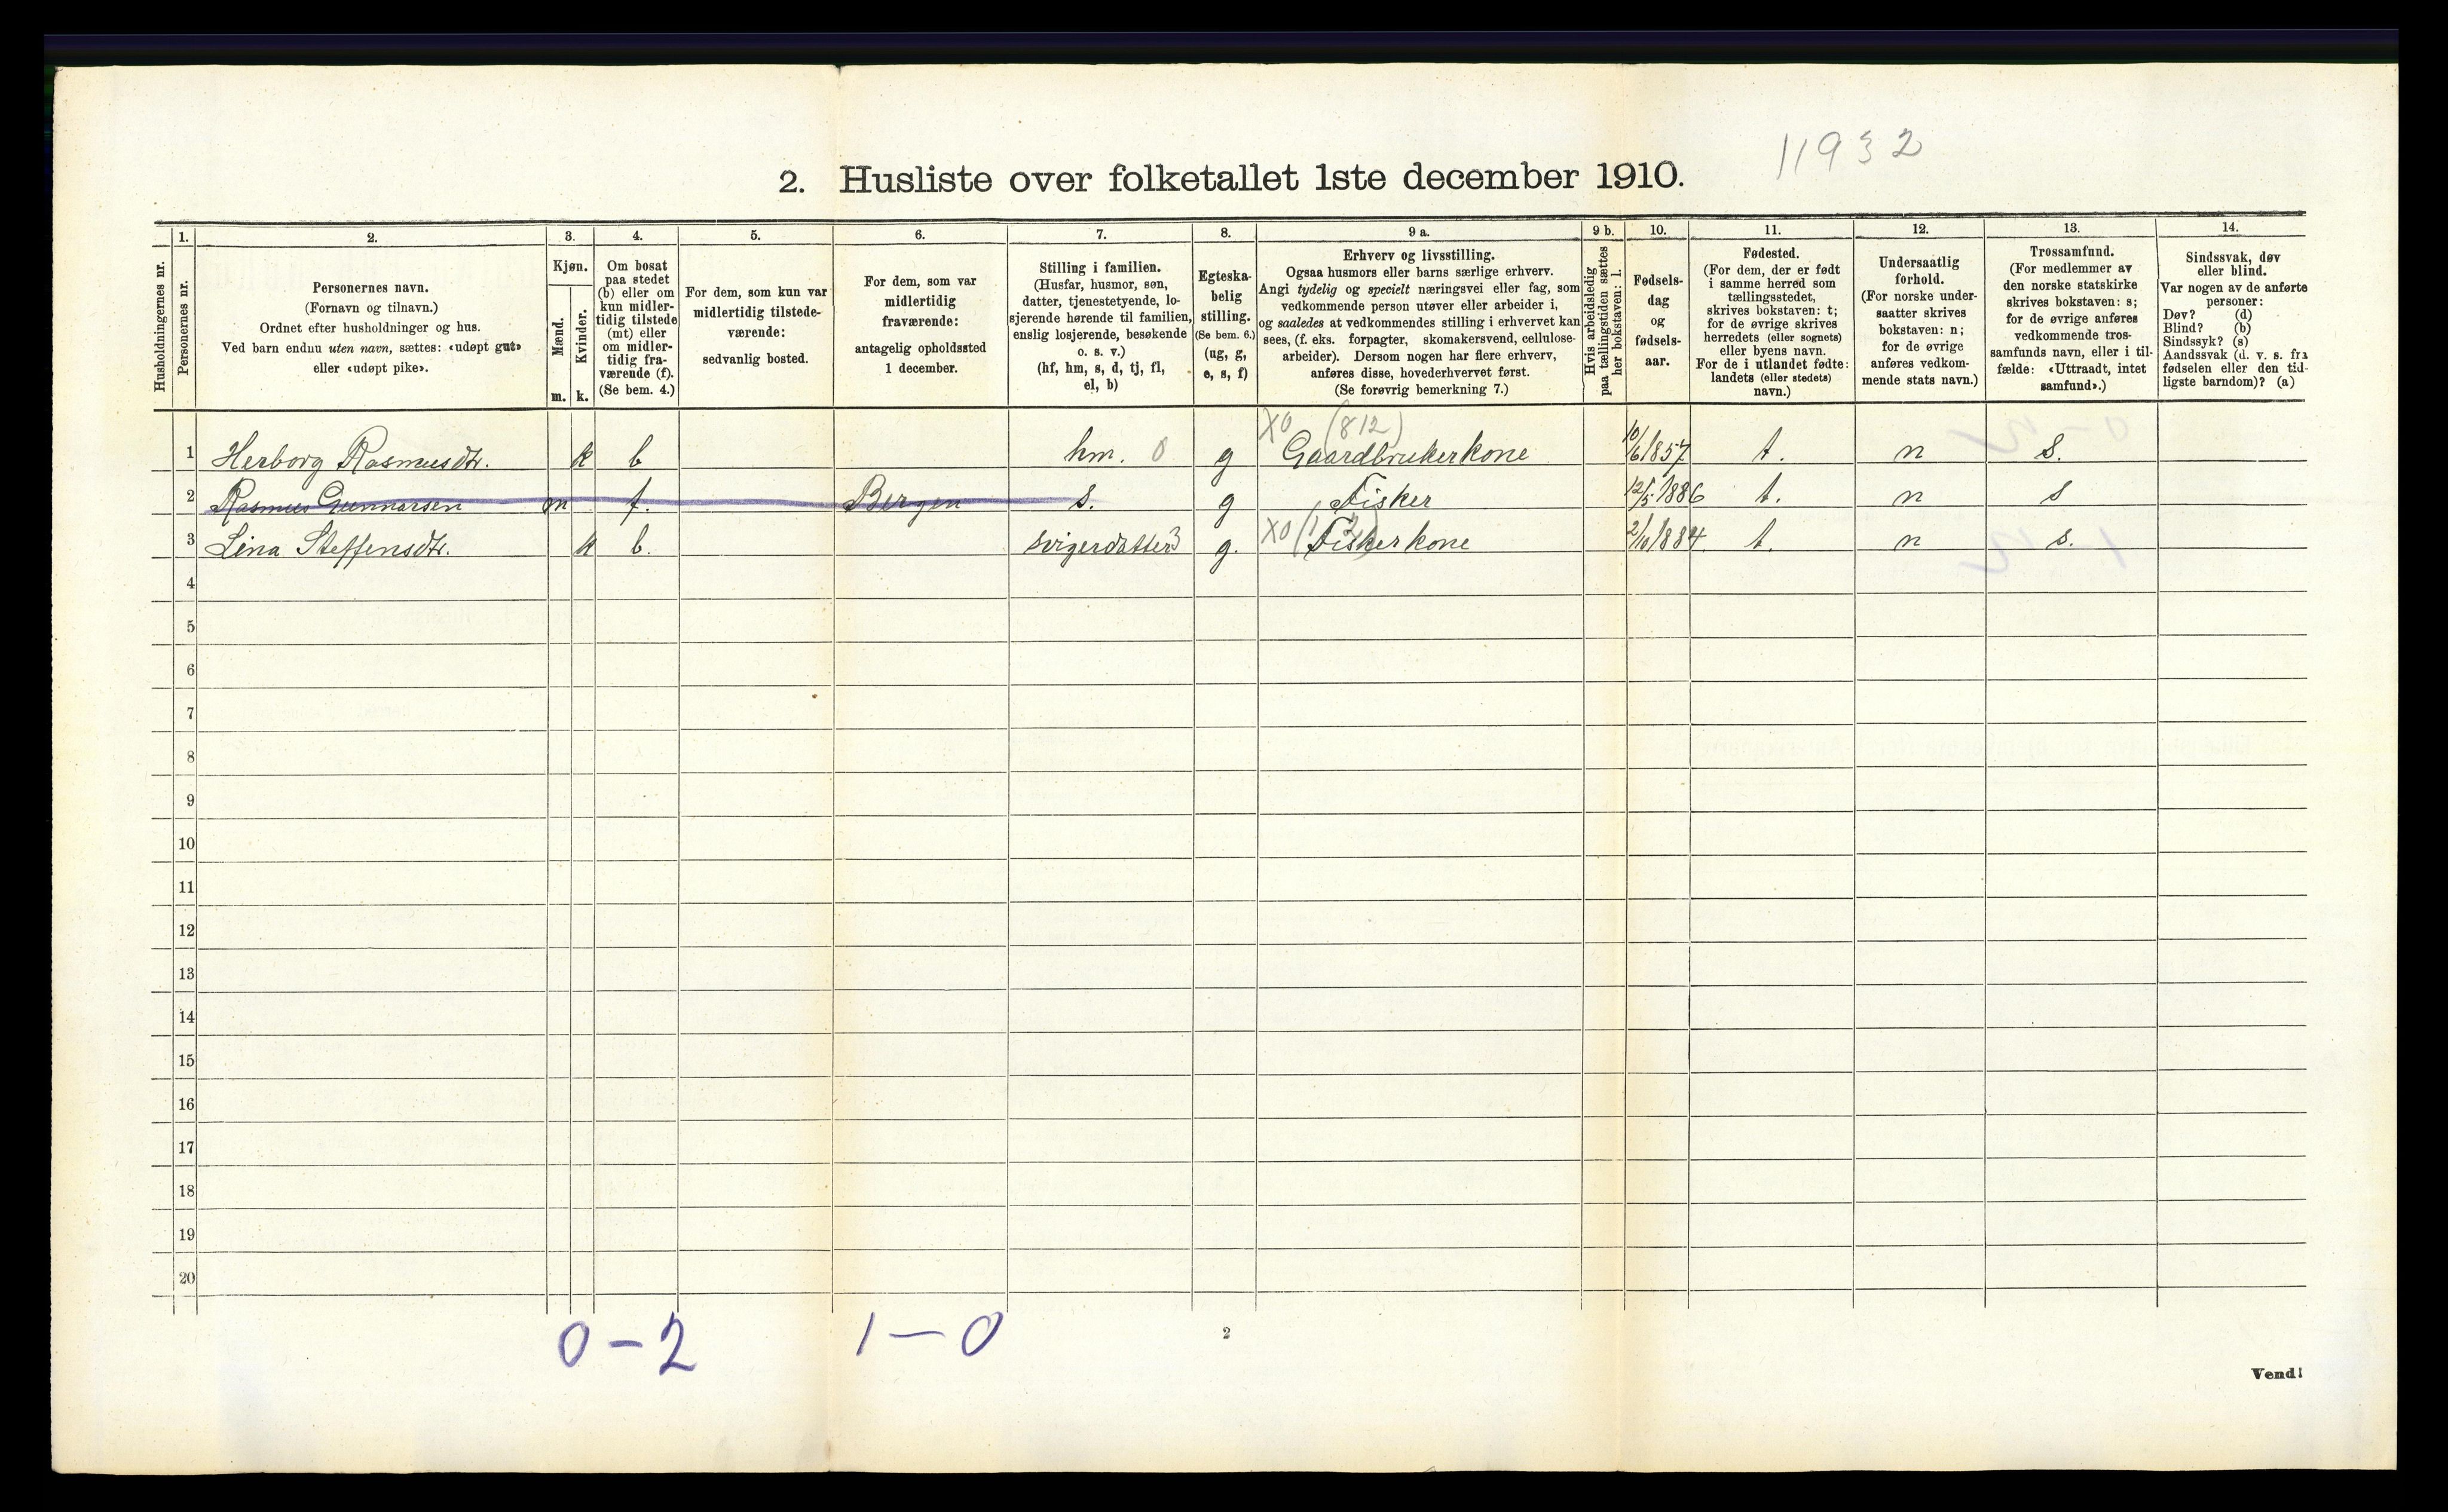 11932
2. Husliste over folketallet 1ste december 1910.
Husholdningernes nr.
1.
Personernes nr.
2.
Personernes navn.
(Fornavn og tilnavn.)
Ordnet efter husholdninger og hus.
Ved barn endnu uten navn, sættes: «udøpt gut»
eller «udøpt pike».
3.
Kjøn.
Mænd.
Kvinder.
m. k.
4.
Om bosat
paa stedet
(b) eller om
kun midler-
tidig tilstede
(mt) eller
om midler-
tidig fra-
værende (f).
(Se bem. 4.)
5.
For dem, som kun var
midlertidig tilstede-
værende:
sedvanlig bosted.
6.
For dem, som var
midlertidig
fraværende:
antagelig opholdssted
1 december.
7.
Stilling i familien.
(Husfar, husmor, søn,
datter, tjenestetyende, lo-
sjerende hørende til familien,
enslig losjerende, besøkende
o. s. v.)
(hf, hm, s, d, tj, fl,
el, b)
8.
Egteska-
belig
stilling.
(Se bem. 6.)
(ug, g,
e, s, f)
9 a.
Erhverv og livsstilling.
Ogsaa husmors eller barns særlige erhverv.
Angi tydelig og specielt næringsvei eller fag, som
vedkommende person utøver eller arbeider i,
og saaledes at vedkommendes stilling i erhvervet kan
sees, (f. eks. forpagter, skomakersvend, cellulose-
arbeider). Dersom nogen har flere erhverv,
anføres disse, hovederhvervet først.
(Se forøvrig bemerkning 7.)
9 b.
Hvis arbeidsledig
paa tællingstiden sættes
her bokstaven: l.
10.
Fødsels-
dag
og
fødsels-
aar.
11.
Fødested.
(For dem, der er født
i samme herred som
tællingsstedet,
skrives bokstaven: t;
for de øvrige skrives
herredets (eller sognets)
eller byens navn.
For de i utlandet fødte:
landets (eller stedets)
navn.)
12.
Undersaatlig
forhold.
(For norske under-
saatter skrives
bokstaven: n;
for de øvrige
anføres vedkom-
mende stats navn.)
13.
Trossamfund.
(For medlemmer av
den norske statskirke
skrives bokstaven: s;
for de øvrige anføres
vedkommende tros-
samfunds navn, eller i til-
fælde: «Uttraadt, intet
samfund».)
14.
Sindssvak, døv
eller blind.
Var nogen av de anførte
personer:
Døv? (d)
Blind? (b)
Sindssyk? (s)
Aandssvak (d. v. s. fra
fødselen eller den tid-
ligste barndom)? (a)
X0 (812)
1 Herborg Rasmusdtr. k b hm. 0 g Gaardbrukerkone 10/6 1857 t. n s.
2 Rasmus Gunnarsen m f. Bergen s. g Fisker 12/5 1886 t. n s
3 Lina Steffensdtr. k b. svigerdatter 3 g. X0 Fiskerkone 2/10 1884. t. n s.
4
5
6
7
8
9
10
11
12
13
14
15
16
17
18
19
20
0-2 1-0
2
Vend!